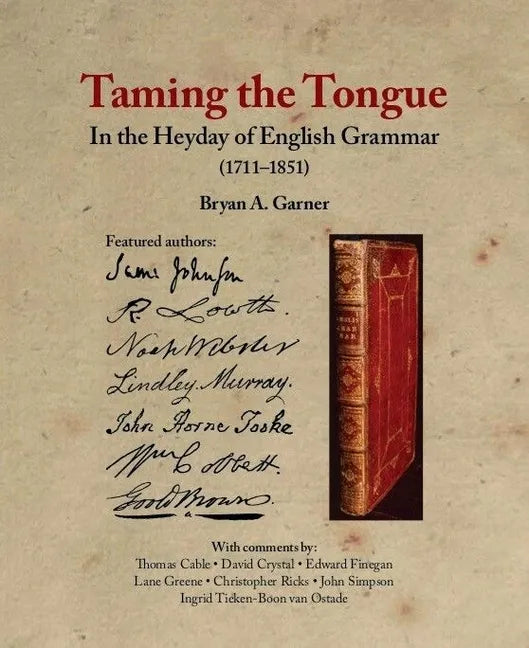 Taming the Tongue
In the Heyday of English Grammar
(1711–1851)
Bryan A. Garner
Featured authors:
Sam: Johnson
R Lowth.
Noah Webster
Lindley Murray.
John Horne Tooke
Wm Cobbett.
Goold Brown.
ENGLIS
GRAM
MAR
With comments by:
Thomas Cable • David Crystal • Edward Finegan
Lane Greene • Christopher Ricks • John Simpson
Ingrid Tieken-Boon van Ostade